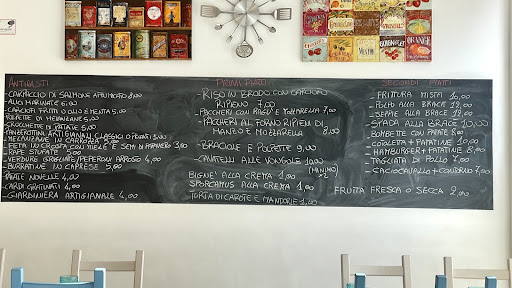 ANTIPASTI
- CARPACCIO DI SALMONE AFFUMICATO 8,00
- ALICI MARINATE 6,00
- CARCIOFI FRITTI O OLIO E MENTA 5,00
- POLPETTE DI MELANZANE 5,00
- CROCCHETTE DI PATATE 5,00
- PANZEROTTINI ARTIGIANALI CLASSICI O FORTI 5,00
- MOZZARELLA IN CARROZZA 5,00
- FETA IN CROSTA CON MIELE E SEMI DI PAPAVERO 7,00
- RAPE STUFATE 5,00
- VERDURE GRIGLIATE/PEPERONI ARROSTO 4,00
- BURRATINE IN CAPRESE 5,00
- PATATE NOVELLE 4,00
- CARDI GRATINATI 4,00
- GIARDINIERA ARTIGIANALE 4,00
PRIMI PIATTI
- RISO IN BRODO CON
RIPIENO 7,00
- PACCHERI CON RAGÙ E MOZZARELLA 7,00
- PACCHERI AL FORNO RIPIENI DI
MANZO E MOZZARELLA 8,00
- BRACIOLE E POLPETTE 9,00
- CAVATELLI ALLE VONGOLE 10,00
(MINIMO X2)
BIGNE' ALLA CREMA 1,00
SPORCAMUS ALLA CREMA 1,00
TORTA DI CAROTE E MANDORLE 1,00
SECONDI PIATTI
- FRITTURA MISTA 10,00
- POLPO ALLA BRACE 12,00
- SEPPIE ALLA BRACE 12,00
- SPADA ALLA BRACE 10,00
- BOMBETTE CON PATATE 8,00
- COTOLETTA + PATATINE 10,00
- HAMBURGER + PATATINE 8,00
- TAGLIATA DI POLLO 7,00
- CACIOCAVALLO + CONTORNO 7,00
FRUTTA FRESCA O SECCA 2,00
ORANGE